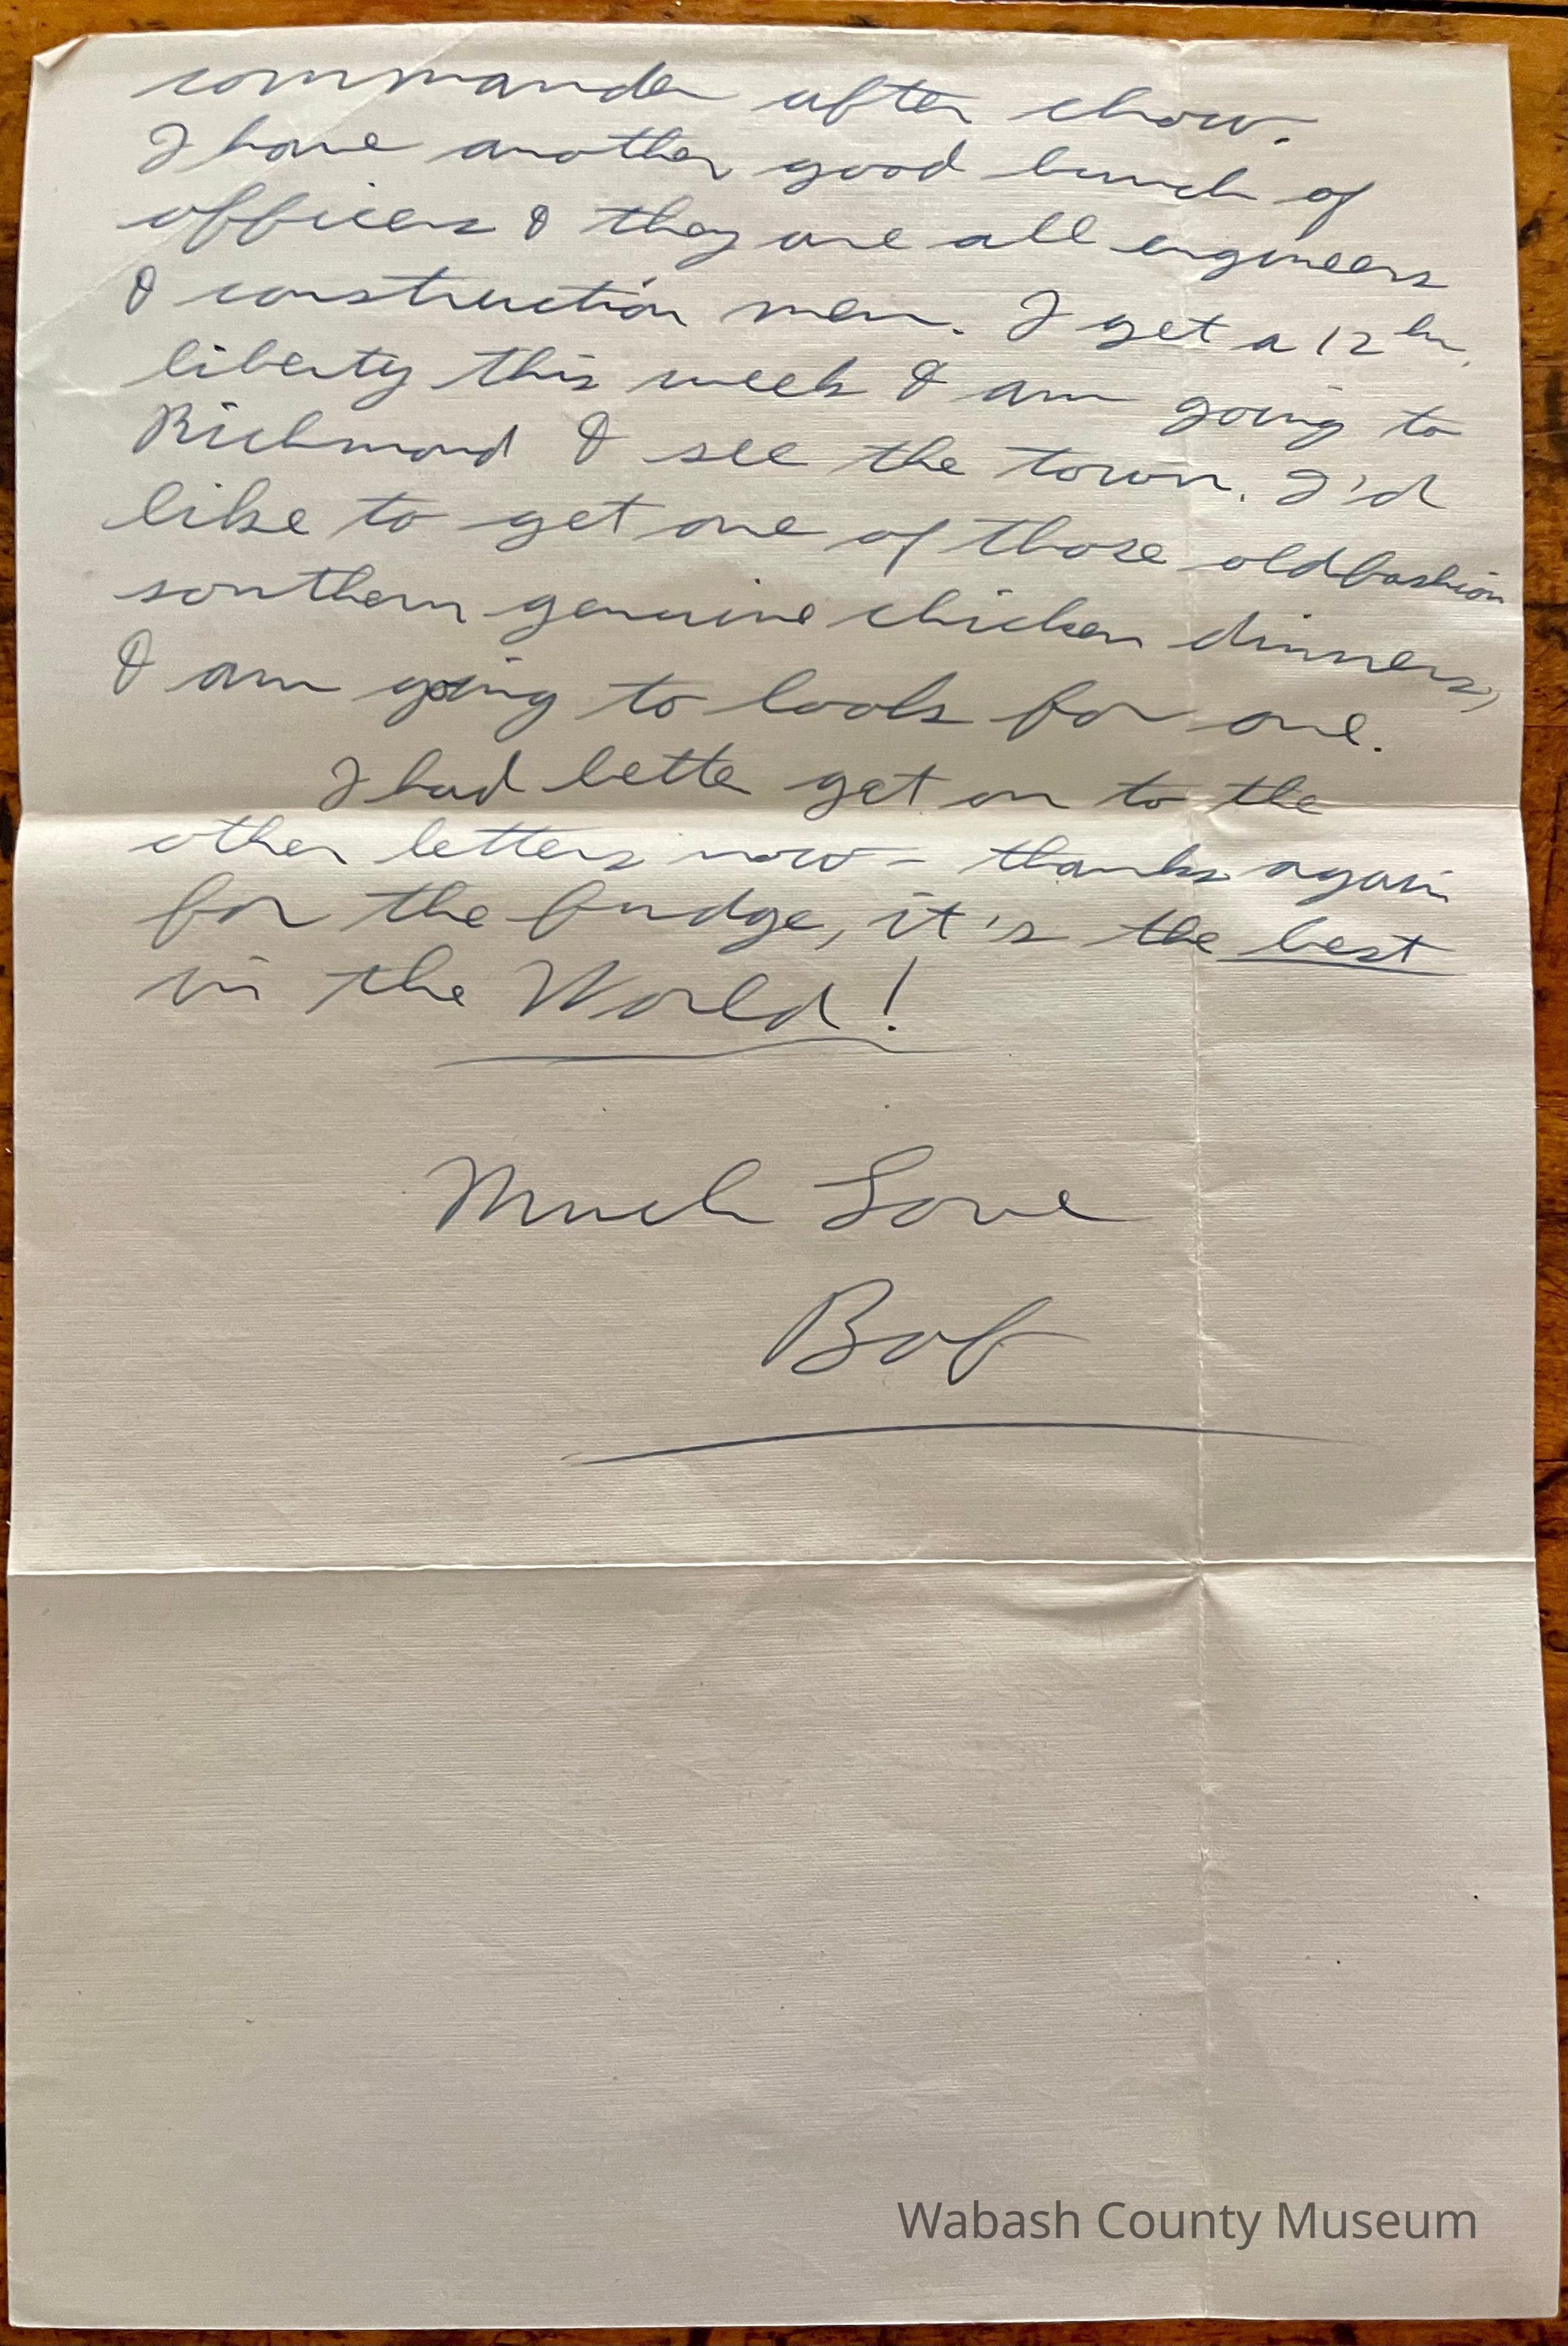 commander after chow.
I have another good bunch of
officers & they are all engineers
& construction men. I get a 12 hr.
liberty this week & am going to
Richmond & see the town. I'd
like to get one of those oldfashion
southern genuine chicken dinners,
& am going to look for one.
I had better get on to the
other letters now – thanks again
for the fudge, it's the best
in the World!
Much Love
Bob
Wabash County Museum